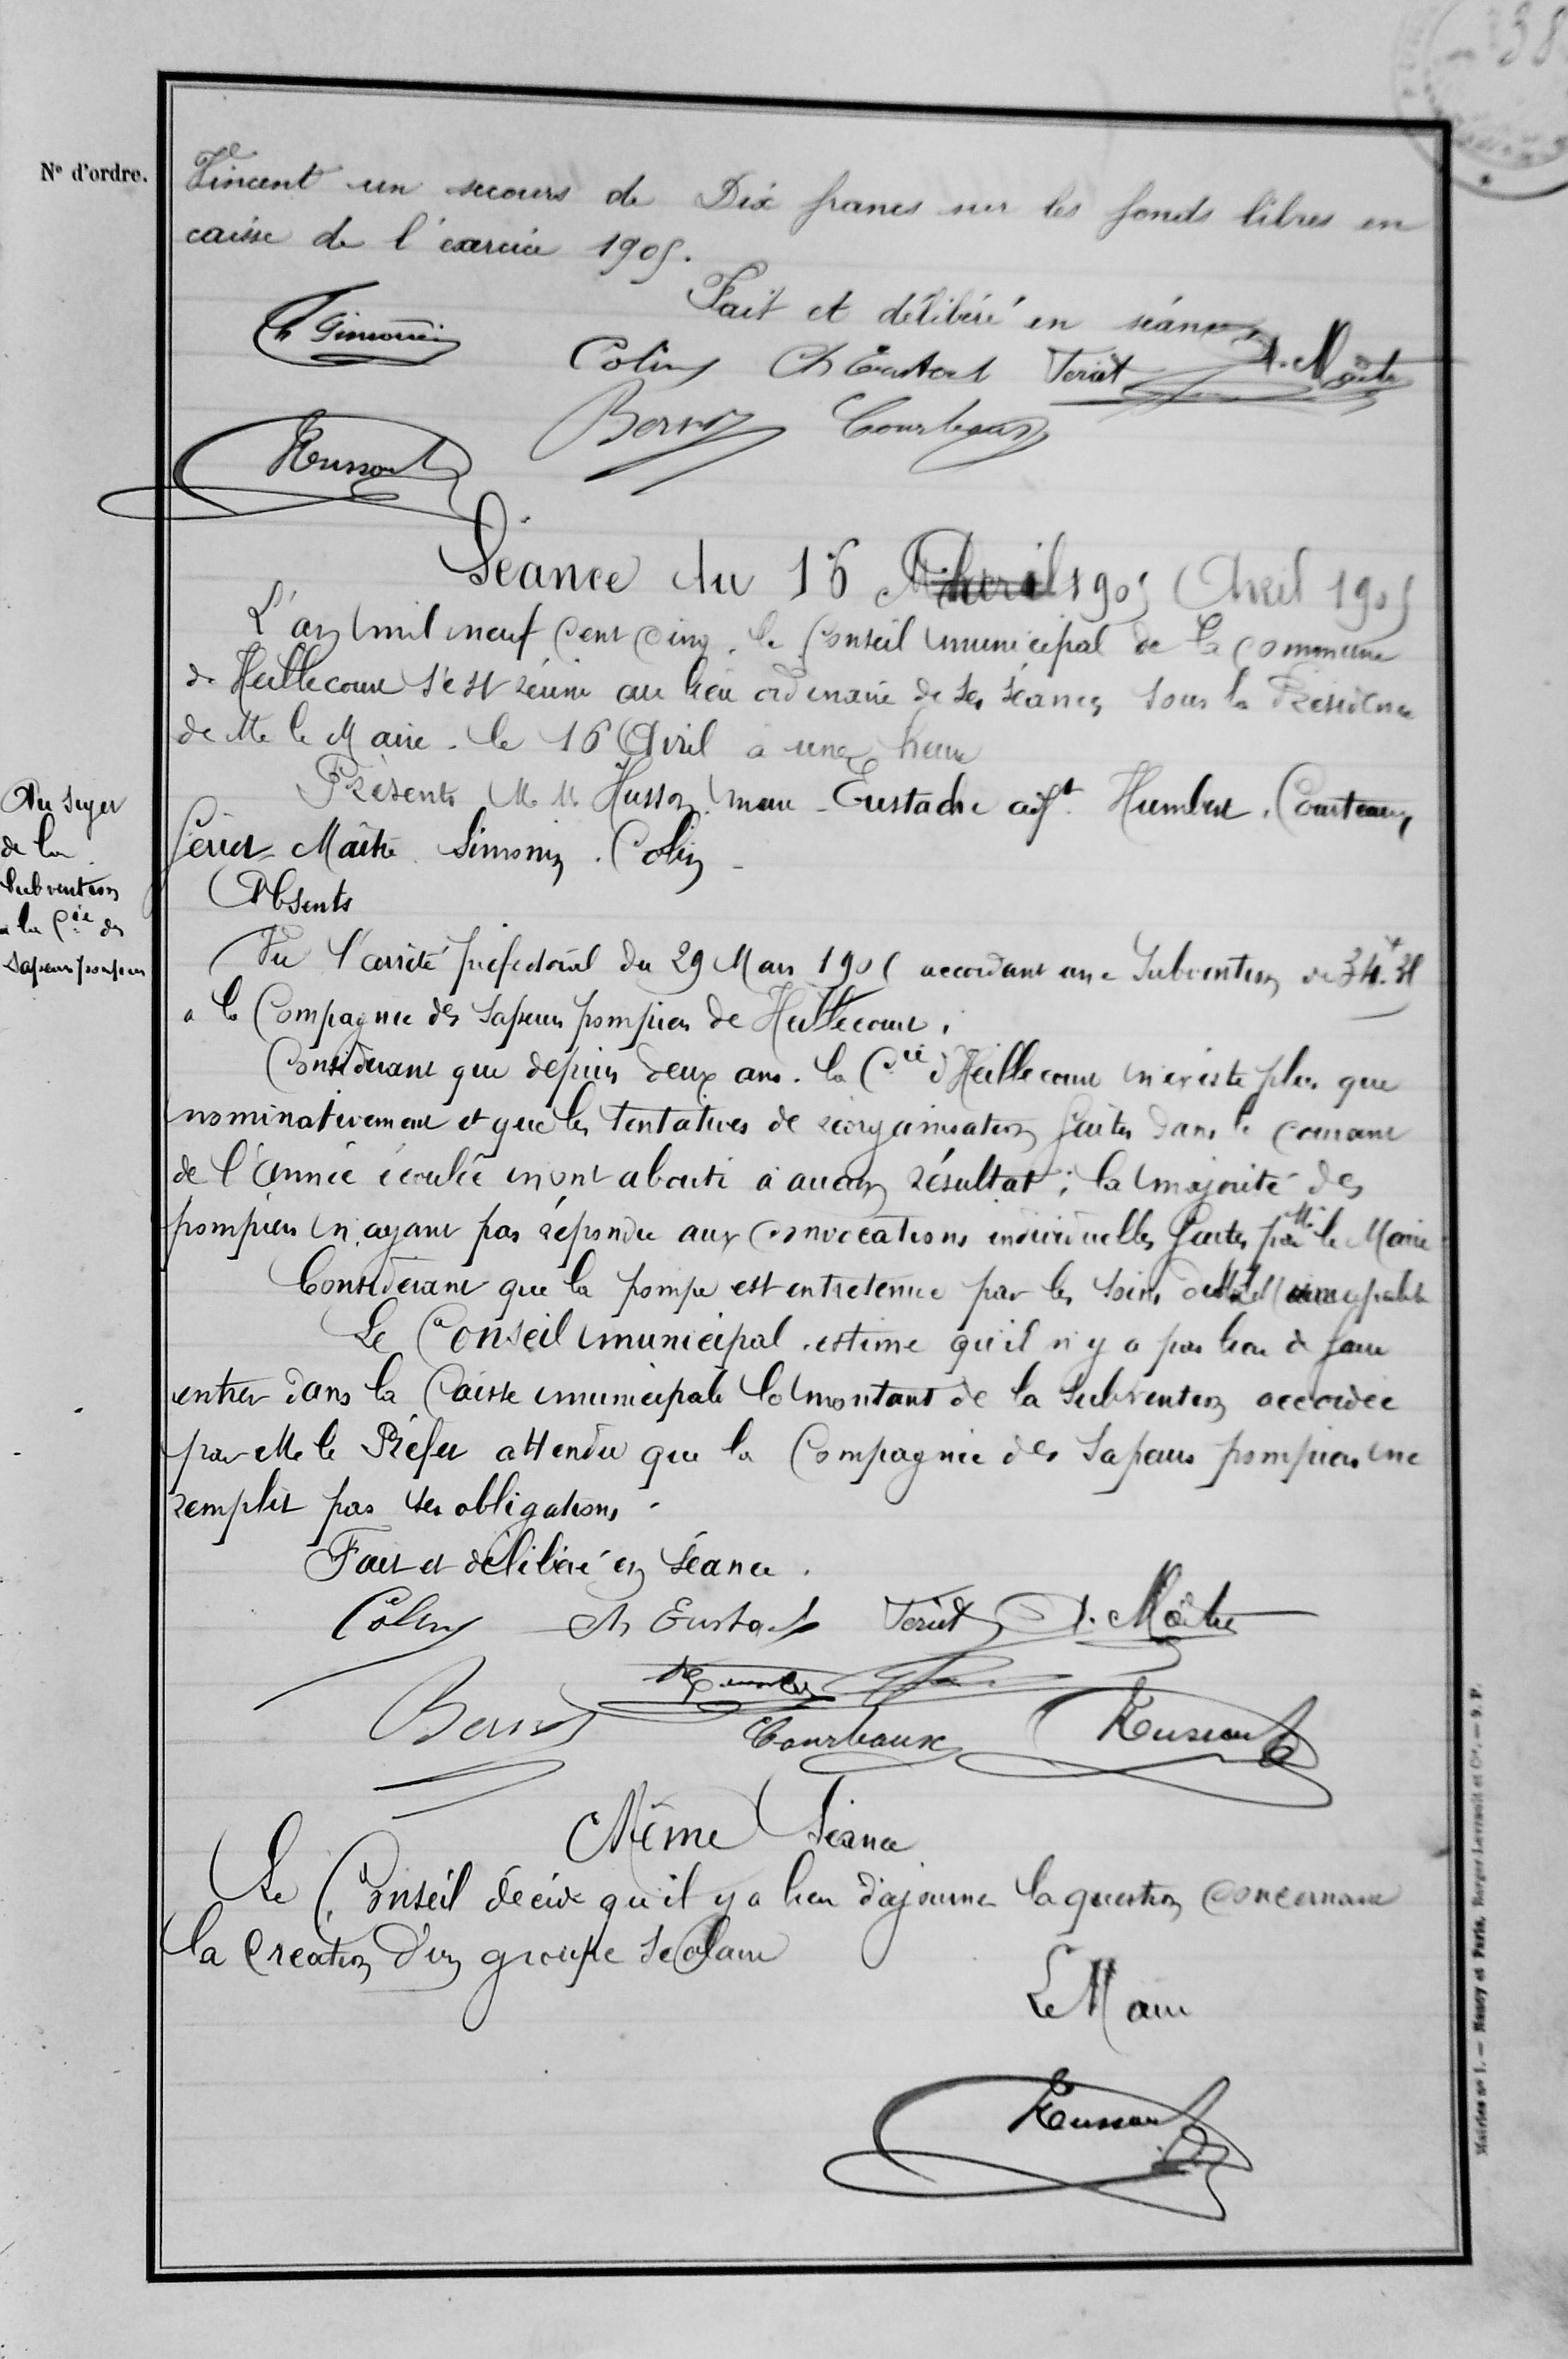 38
N° d'ordre.
Vincent un secours de Dix francs sur les fonds libres en
caisse de l'exercice 1905.
Fait et délibéré en séance
Ch Simonin
Colin Ch Eustach Feriet A. Maître
Courteaux
Husson
Séance du 16 Avril 1905
L'an mil neuf cent cinq, le Conseil municipal de la commune
de Heillecourt s'est réuni au lieu ordinaire de ses séances sous la Présidence
de M. le Maire. le 16 Avril à une heure
Présents M. M. Husson, maire - Eustache adjt. Humbert, Courteaux,
Fériet - Maître. Simonin. Colin -
Absents
Au sujet
de la
Subvention
à la Cie des
sapeurs pompiers
Vu l'arrêté préfectoral du 29 Mars 1905 accordant une Subvention de
à la Compagnie des Sapeurs pompiers de Heillecourt.
Considérant que depuis deux ans. la Cie d'Heillecourt n'existe plus que
nominativement et que les tentatives de réorganisation faites dans le courant
de l'année écoulée n'ont abouti à aucun résultat ; la majorité des
pompiers n'ayant pas répondu aux convocations individuelles faites par Mr le Maire
Considérant que la pompe est entretenue par les soins de la Municipalité
Le Conseil municipal. estime qu'il n'y a pas lieu de faire
entrer dans la Caisse municipale le montant de la Subvention accordée
par M. le Préfet attendu que la Compagnie des Sapeurs pompiers ne
remplit pas ses obligations.
Fait et délibéré en Séance.
Colin Ch Eustach Feriet A. Maître
Courteaux Husson
Même Séance
Le Conseil décide qu'il y a lieu d'ajourner la question concernant
la Création d'un groupe scolaire
Le Maire
Husson
Mairies n° 1. — Nancy et Paris, Berger-Levrault et Cie. — S. P.